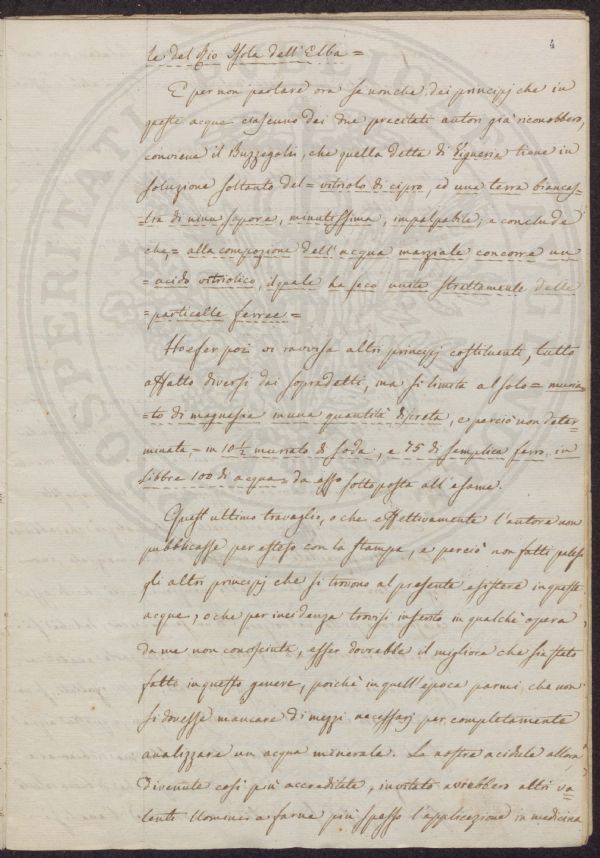 4
le del Rio Isola dell'Elba =
E per non parlare ora se non che dei principj che in
queste acque ciascuno dei due precitati autori già riconobbero,
conviene il Buzzegoli, che quella detta di Vigneria tiene in
soluzione soltanto del = vitriolo di cipro, ed una terra biancas=
=tra di niun sapore, minutissima, impalpabile, e conclude
che, = alla composizione dell'acqua marziale concorre un
= acido vitriolico, il quale ha seco unite strettamente delle
= particelle ferree =
Hoefer poi vi ravvisa altri principj costituenti, tutto
affatto diversi dai sopradetti, ma si limita al solo = muria=
=to di magnesia in una quantità discreta, e perciò non deter
minata = in 10 1/2 muriato di soda, e 75 di semplice ferro, in
Libbre 100 di acqua = da esso sottoposta all'esame.
Quest'ultimo travaglio, o che effettivamente l'autore non
pubblicasse per esteso con la stampa, e perciò non fatti palesi
gli altri principj che si trovono al presente esistere in queste
acque, o che per incidenza trovisi inserito in qualche opera
da me non conosciuta, esser dovrebbe il migliore che sia stato
fatto in questo genere, poichè in quell'epoca parmi, che non
si dovesse mancare di mezzi necessarj per completamente
analizzare un acqua minerale. Le nostre acidule allora,
divenute così più accreditate, invitato avrebbero altri va=
lenti Uomini a farne più spesso l'applicazione in medicina